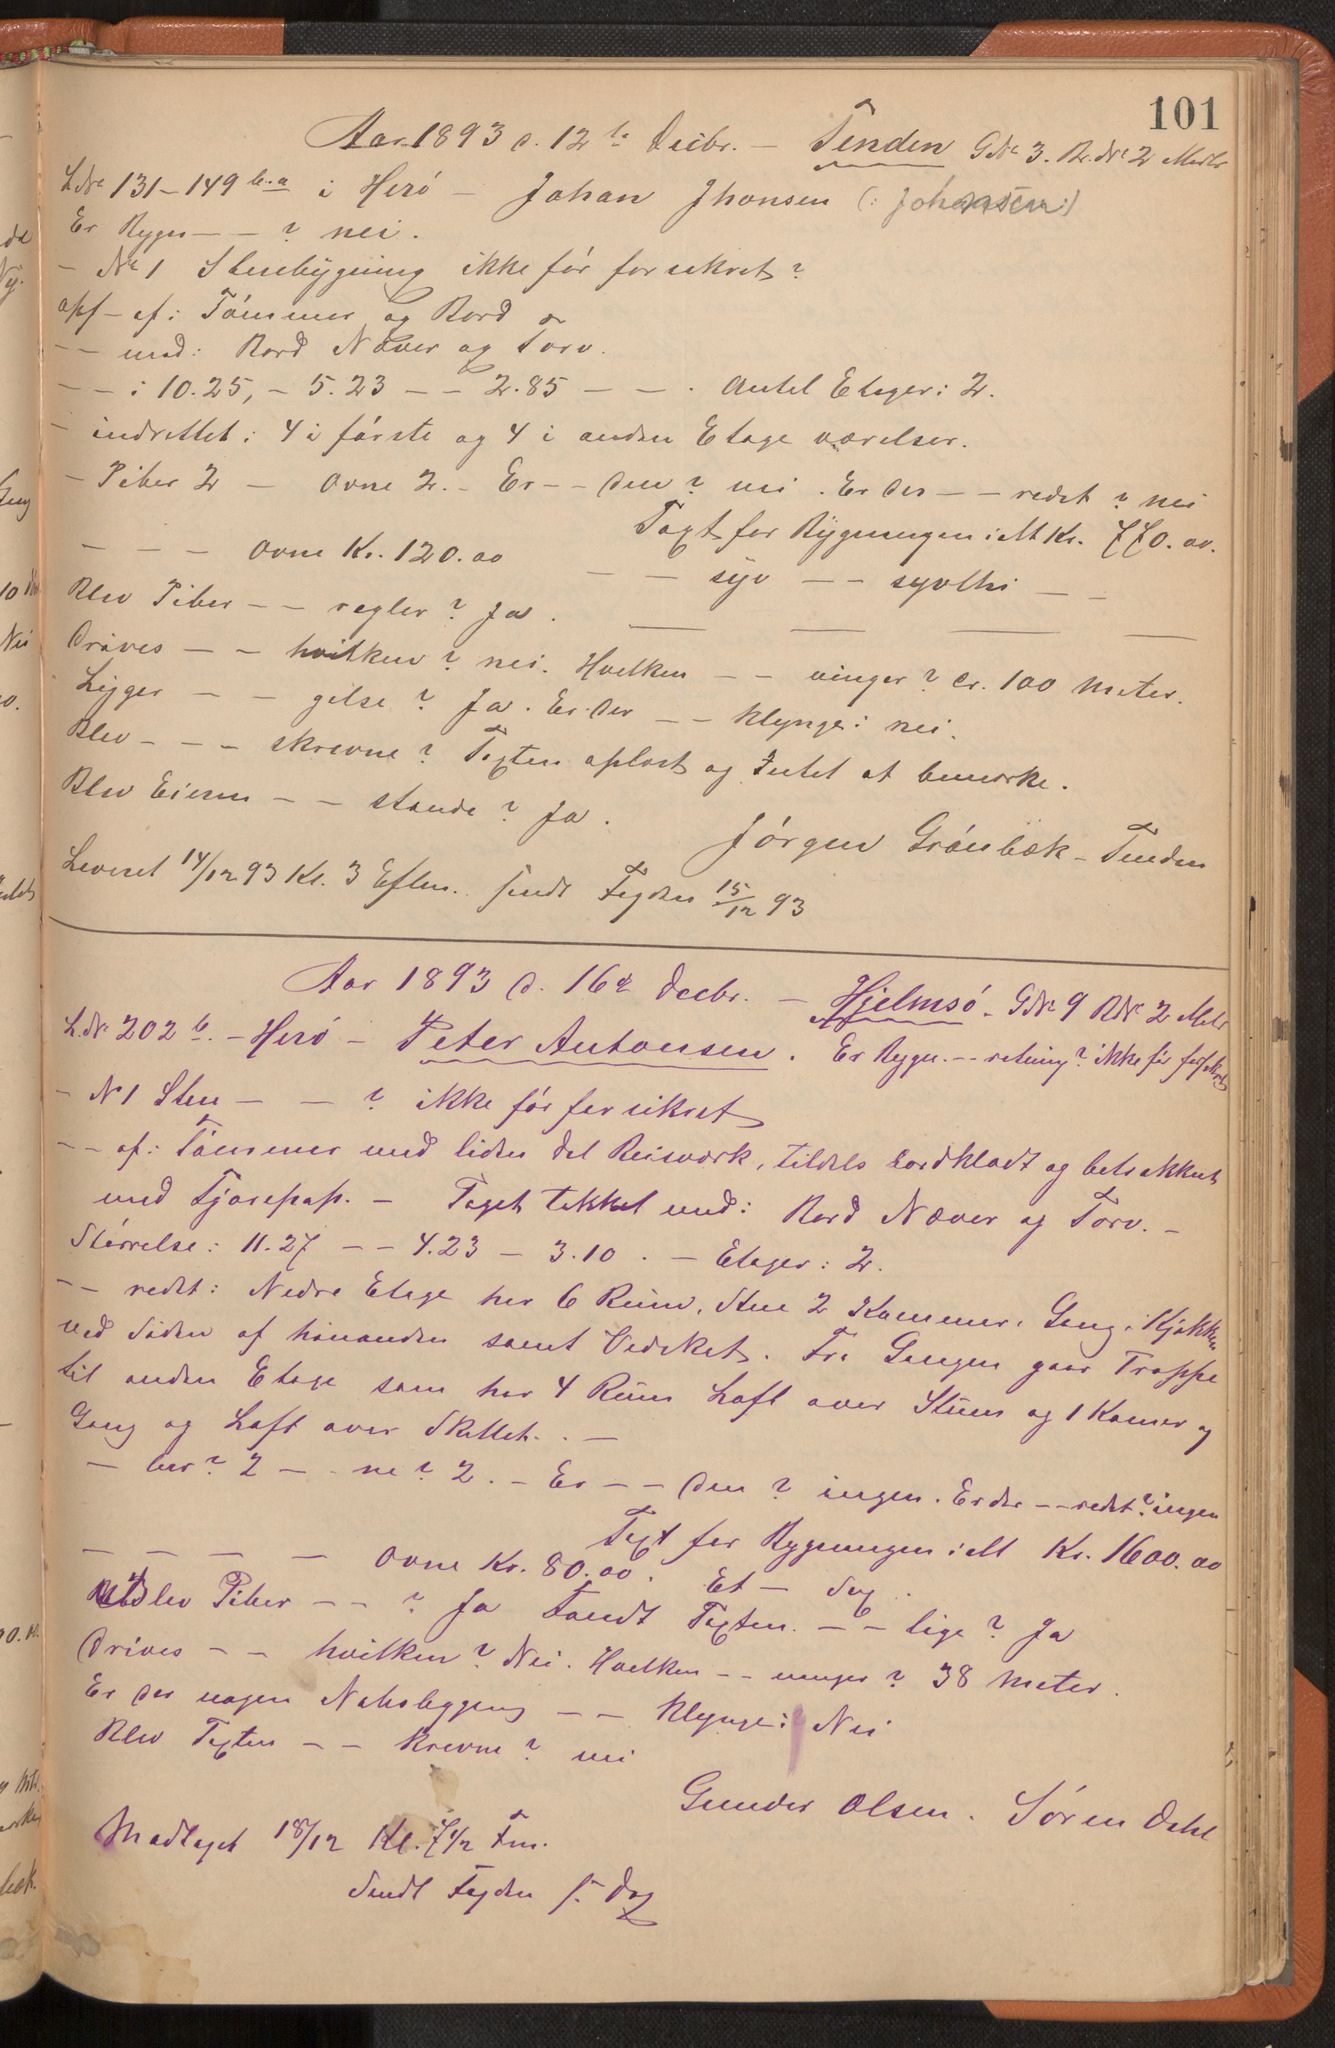 101
Aar 1893 d. 12te Decbr. — Tenden GNr 3. Br.Nr 2 Matr
LNr 131–149 b.a i Herö — Johan Jhonsen (: Johansen :)
Er Bygn — — ? nei.
— No 1 Stuebygning ikke før forsikret?
opf — af: Tømmer og Bord
— — med: Bord Næver og Torv.
— — : 10.25, — 5.23 — — 2.85 — — . Antal Etager: 2.
— indrettet: 4 i første og 4 i anden Etage værelser.
— Piber 2 — Ovne 2. — Er — — den? nei. Er der — — redet? nei
Taxt for Bygningen ialt Kr. 770.00.
— — — Ovne Kr. 120.00
— — syv — — sytti — —
Blev Piber — — regler? Ja.
Drives — — hvilken? nei. Hvilken — — ninger? Cr. 100 meter.
Ligger — — gelse? Ja. Er der — — klynge: nei.
Blev — — — skrevne? Taxten oplæst og Intet at bemærke.
Blev Eieren — — stande? Ja.
Jørgen Grønbæk — Tenden
Leveret 14/12 93 Kl. 3 Eftm. sendt Fogden 15/12 93
Aar 1893 d. 16de Decbr. — Hjelmsø. GNr 9 BNr 2 Matr
L.Nr 202 b. — Herö — Peter Antonsen. Er Bygn. — — retning? ikke før forsikret
— N 1 Stue — — ? ikke før forsikret
— — af: Tømmer med liden del Reisværk, tildels bordklædt og betrækket
med Tjærepap. — Taget tækket med: Bord Næver og Torv. —
Størrelse: 11.27 — — 4.23 — 3.10. — Etager: 2.
— — redet: Nedre Etage har 6 Rum, Stue 2 Kammer, Gang, Kjøkken
ved Siden af hinanden samt Vedskot. Fra Gangen gaar Trappe
til anden Etage som har 4 Rum Loft over Stuen og 1 Kamer og
Gang og Loft over Skottet. . —
— ber? 2 — . ne? 2. — Er — — den? ingen. Er der — — redet? ingen
Taxt for Bygningen ialt Kr. 1600.00
— — — — Ovne Kr. 80.00. Et — Sex.
Blev Piber — — ? Ja Fandt Taxten. — — lige? Ja
Drives — — hvilken? Nei. Hvilken — — ninger? 38 meter.
Er der nogen Nabobygning — — klynge: Nei
Blev Taxten — — krevne? nei
Gunder Olsen. Søren Dahl
Modtaget 18/12 Kl. 7 1/2 Fm.
Sendt Fogden s. Dag